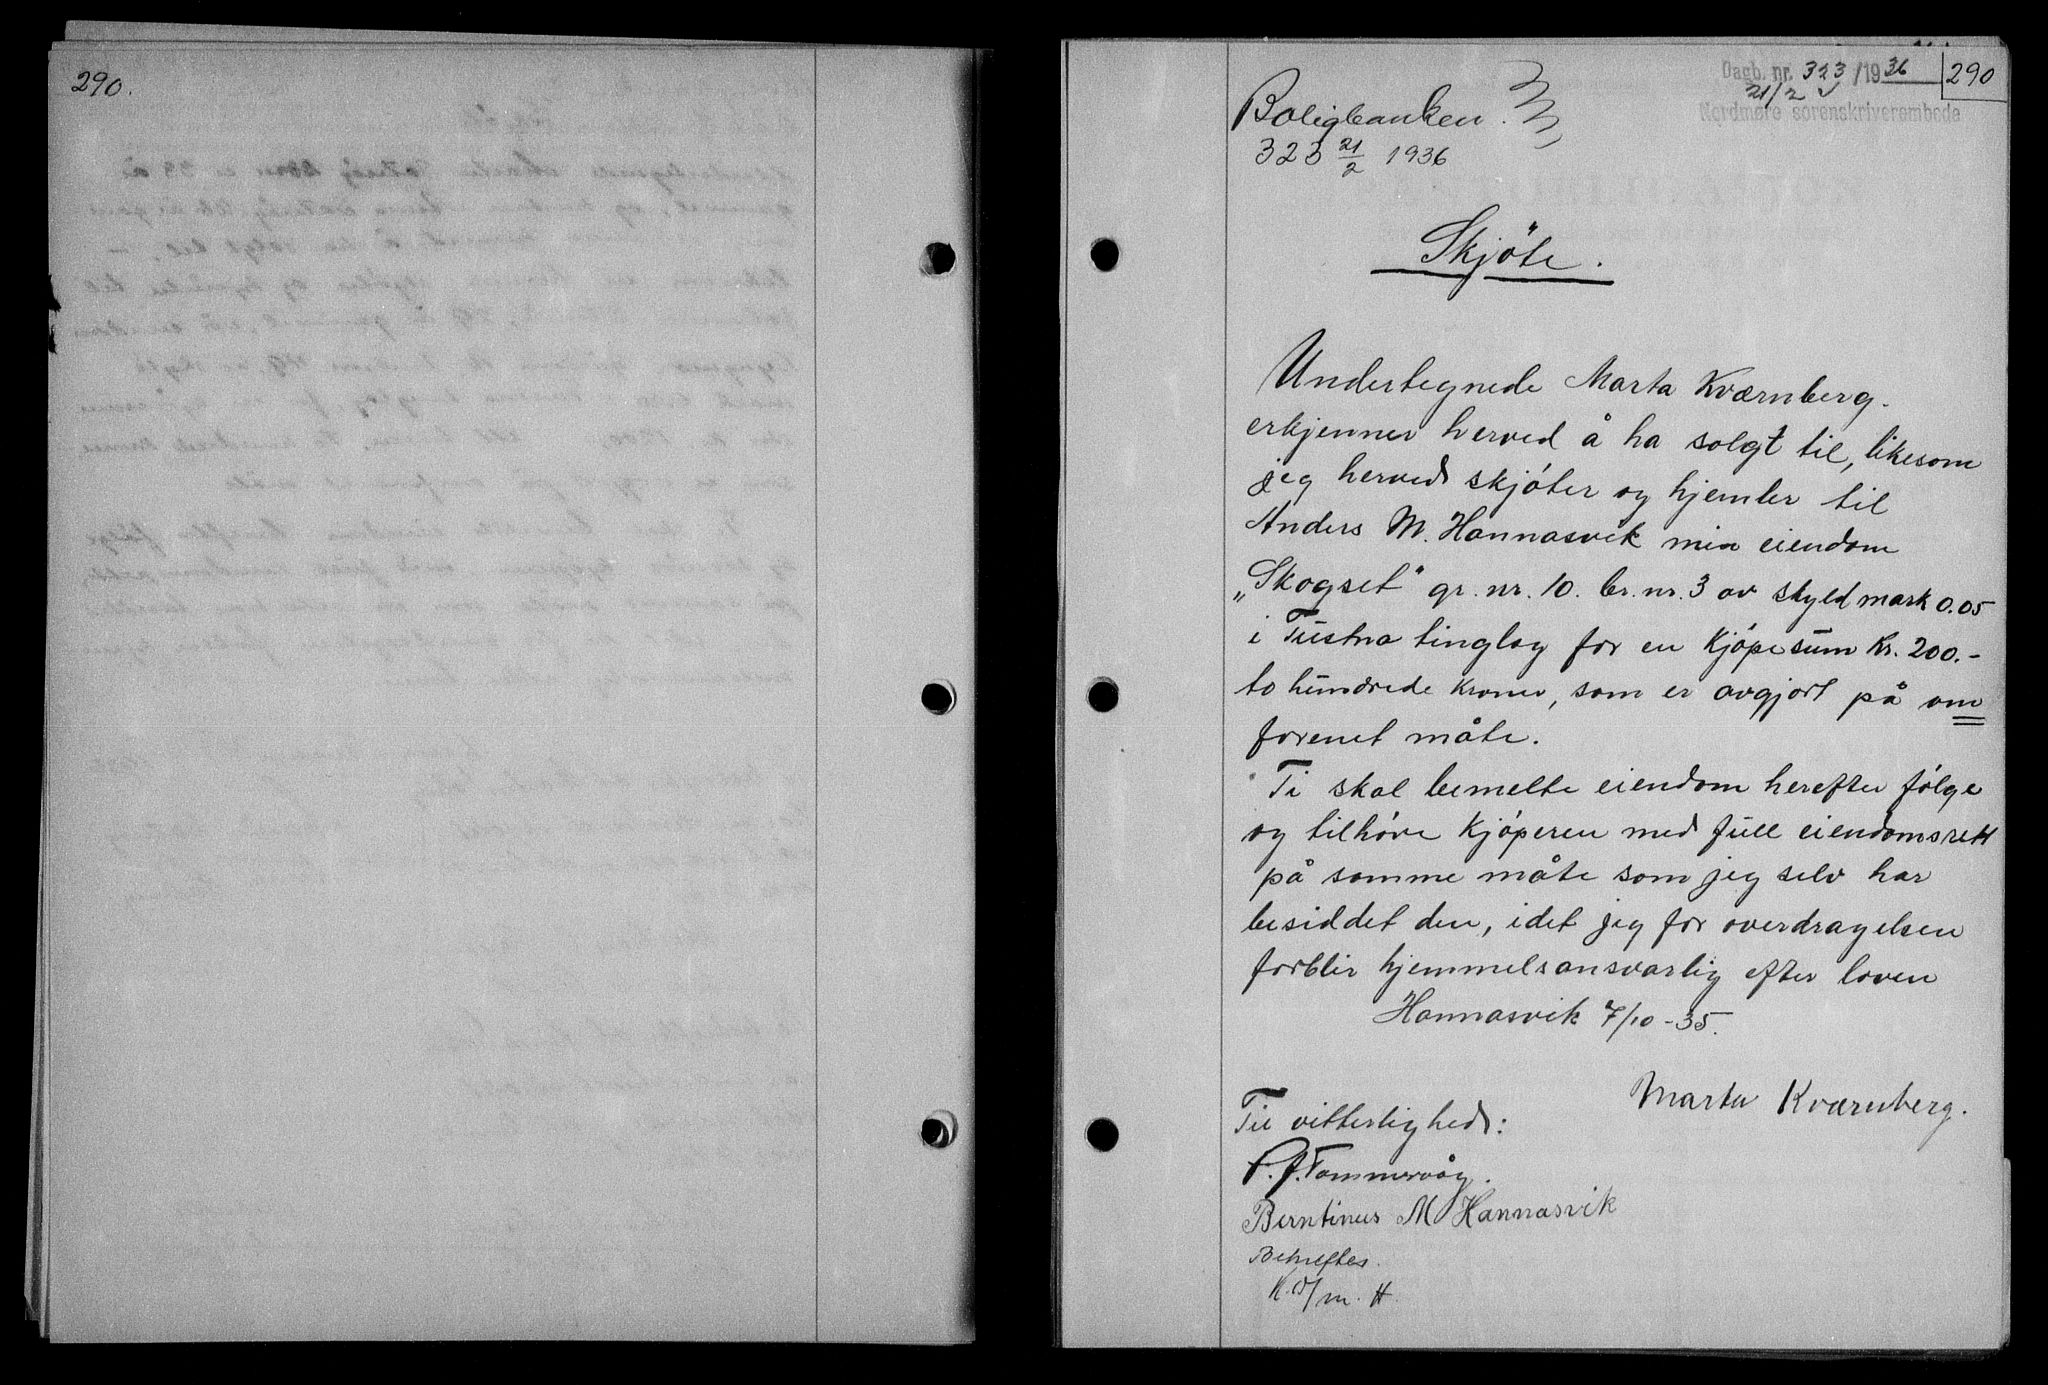 290.
Dagb. nr. 323/1936
21/2
290
Nordmøre sorenskriverembede
Boligbanken.
323 21/2 1936
Skjöte.
Undertegnede Marta Kværnberg.
erkjenner herved å ha solgt til, likesom
jeg herved skjöter og hjemler til
Anders M. Hannasvik min eiendom
„Skogset" gr. nr. 10. br. nr. 3 av skyld mark 0.05
i Tustna tinglag for en kjöpesum kr. 200.-
to hundrede kroner, som er avgjort på om
forenet måte.
Ti skal bemelte eiendom herefter fölge
og tilhöre kjöperen med full eiendomsrett
på samme måte som jeg selv har
besiddet den, idet jeg for overdragelsen
forblir hjemmelsansvarlig efter loven
Hannasvik 7/10-35.
Marta Kværnberg.
Til vitterlighed:
P. J. Tømmervåg.
Berntinus M Hannasvik
Bekreftes.